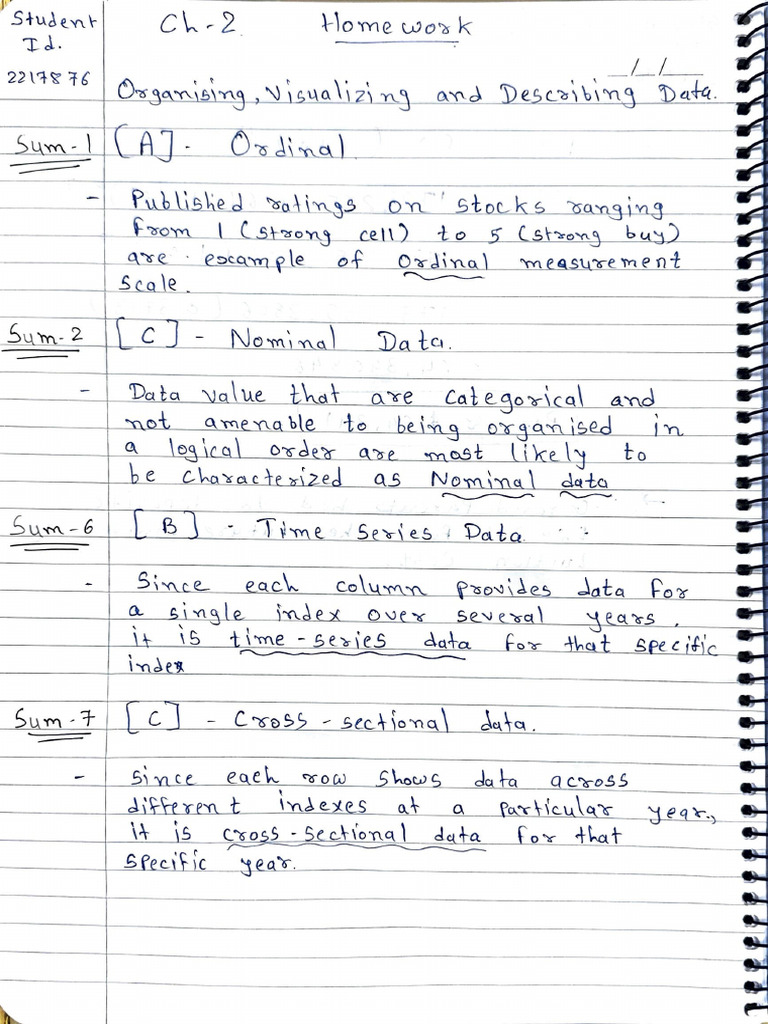 Student
Id.
2217876
Ch-2 Homework
__/__/____
Organising, Visualizing and Describing Data.
Sum-1 [A]- Ordinal
- Published ratings on stocks ranging
from 1 (strong cell) to 5 (strong buy)
are example of Ordinal measurement
scale.
Sum-2 [C] - Nominal Data.
- Data value that are categorical and
not amenable to being organised in
a logical order are most likely to
be characterized as Nominal data
Sum-6 [B] - Time series Data
- Since each column provides data for
a single index over several years,
it is time-series data for that specific
index
Sum-7 [C] - Cross-sectional data.
- Since each row shows data across
different indexes at a particular year,
it is cross-sectional data for that
specific year.